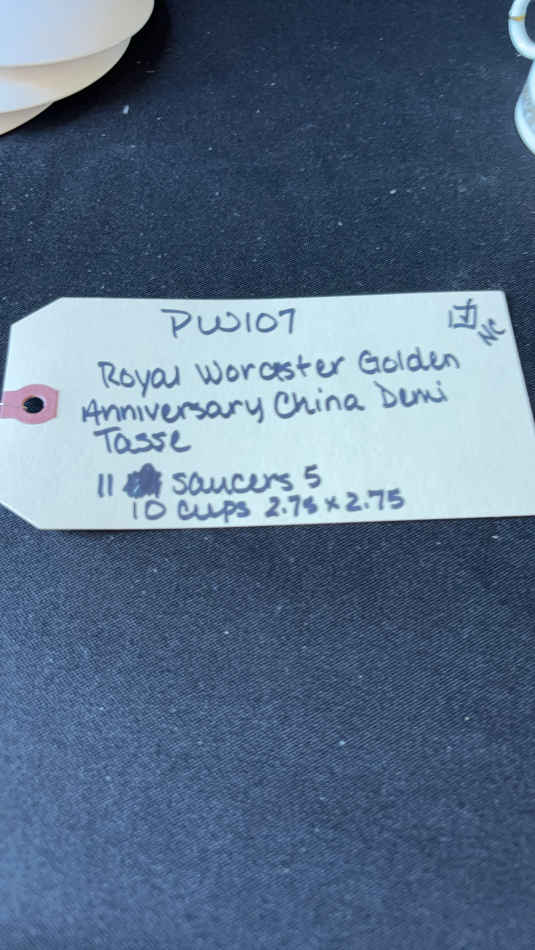 PW107
NC
Royal Worcester Golden
Anniversary China Demi
Tasse
11 saucers 5
10 cups 2.75 x 2.75